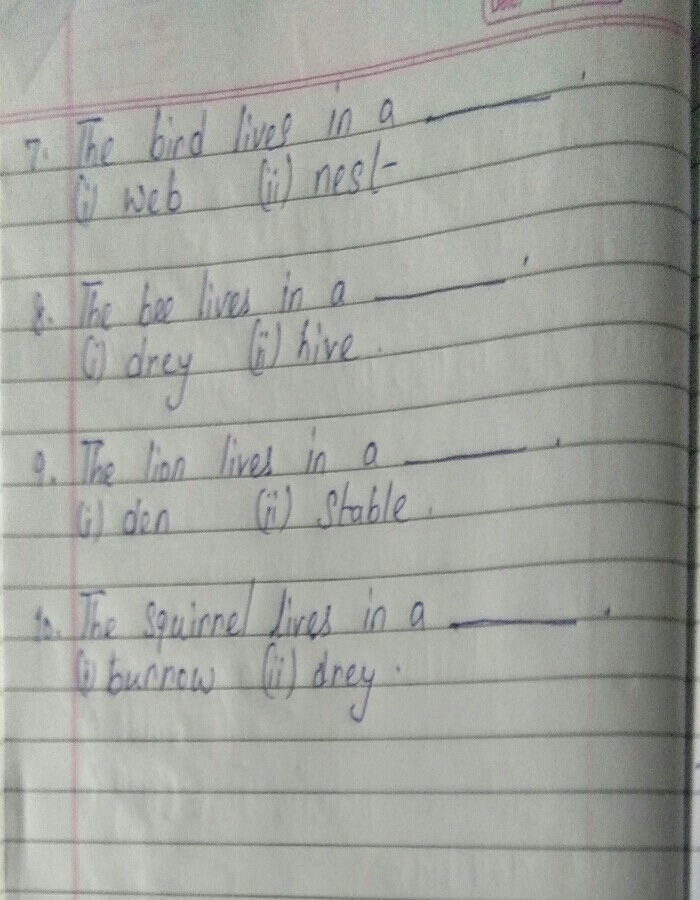 Date
7. The bird lives in a ———.
(i) web (ii) nest
8. The bee lives in a ———.
(i) drey (ii) hive.
9. The lion lives in a ———.
(i) den (ii) stable.
10. The squirrel lives in a ———.
(i) burrow (ii) drey.